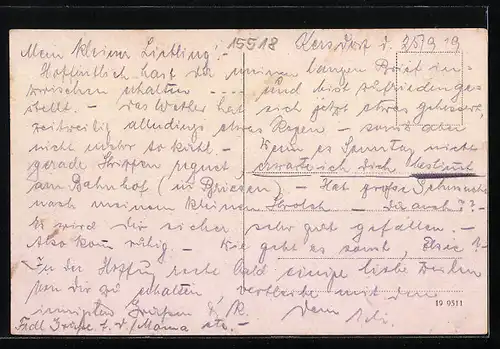 15518 Kersdorf i. 25/9 19
Mein kleiner Liebling! -
Hoffentlich hast du meinen langen Brief in-
zwischen erhalten ---- und bist zufriedenges-
stellt. - Das Wetter hat sich jetzt etwas gebessert,
zeitweilig allerdings etwas Regen - sonst aber
nicht mehr so kalt. - Wenn es Sonntag nicht
gerade Strippen regnet erwarte ich dich bestimmt
am Bahnhof (in Briesen) - Hab große Sehnsucht
nach meinem kleinen Strolch - du auch?? -
Es wird dir sicher sehr gut gefallen. -
Also komm ruhig. - Wie geht es sonst, ?-
In der Hoffng recht bald einige liebe Zeilen
von dir zu erhalten, verbleibe mit den
innigsten Grüßen & K. dein
Frdl. Grüße f. d. Mama etc. -
19 0311